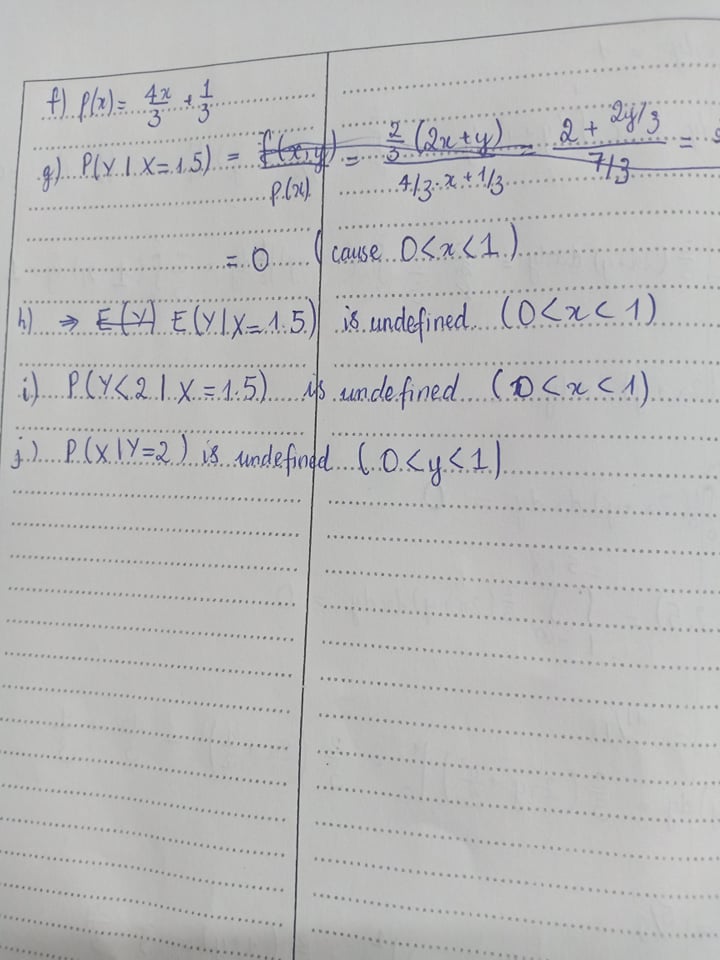 f) P(x) = 4x/3 + 1/3
g) P(Y | X = 1.5) = f(x,y)/P(x) = 2/3 (2x+y) / 4/3 · x + 1/3 = 2 + 2y/3 / 7/3 =
= 0 (cause 0 < x < 1)
h) ⇒ E(Y) E(Y | X = 1.5) is undefined (0 < x < 1)
i) P(Y < 2 | X = 1.5) is undefined (0 < x < 1)
j) P(X | Y = 2) is undefined (0 < y < 1)